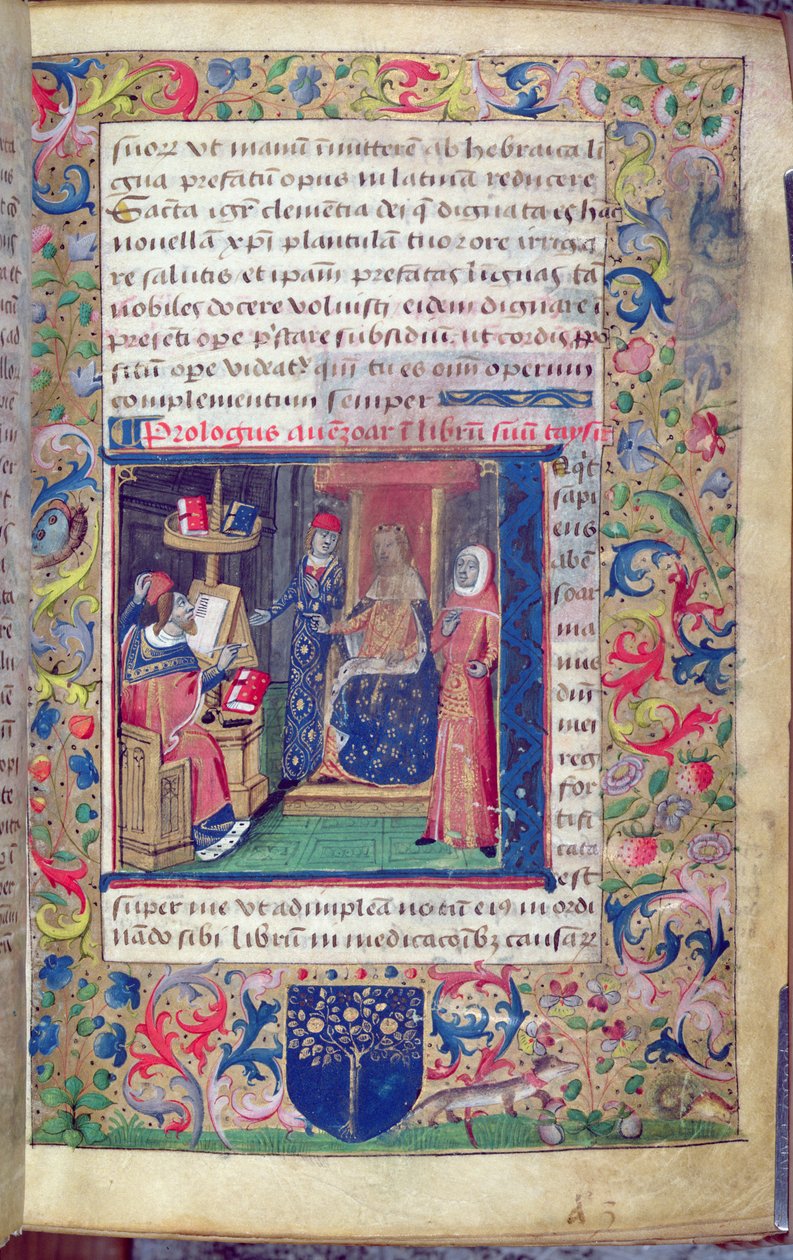 suoꝝ vt manū īmitterē ab hebraica li
gua prefatū opus in latinā reducere
Sancta igr̄ clementia dei q̄ dignata es hāc
nouellā xp̄i plantulā tuo rore irriga
re salutis et ip̄am prefatas liguas tā
nobiles docere voluisti eidem dignare ī
presēti ope p̄stare subsidiū ut cordis
ope videatr̄ tu es om̄ operum
complementum semper
Prologus auēzoar ī librū suū taysir
sapi
ens
abē
soar
ma
nus
dn̄i
mei
reg
for
tifi
cata
est
super me vt adimpleā uotū eiꝰ in ordi
nādo sibi librū in medicacōibꝫ causaꝝ
A 5